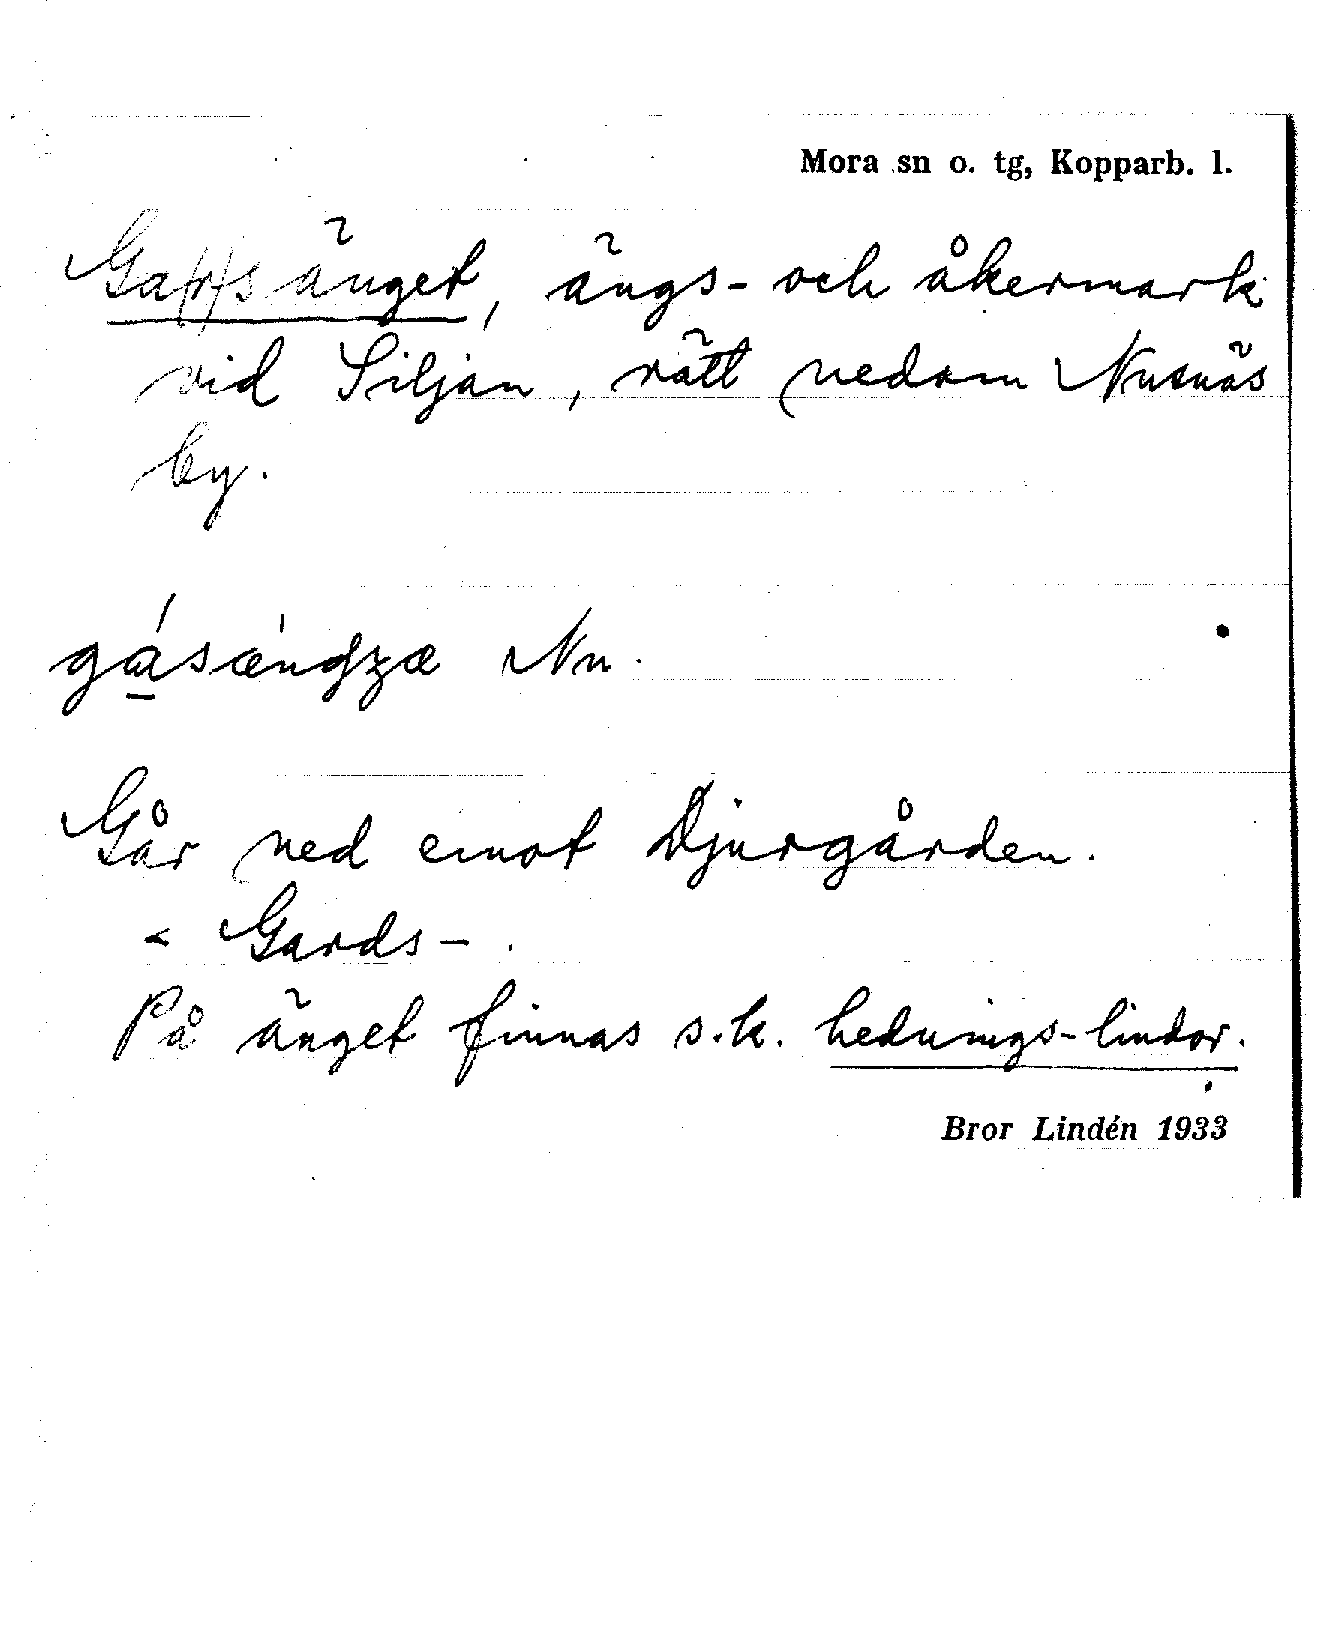 Mora sn o. tg, Kopparb. l.
Ga(r)sänget, ängs- och åkermark
vid Siljan, rätt nedom Nusnäs
by.
gásǽndzæ Nu.
Går ned emot Djurgården.
< Gards-.
På änget finnas s.k. hednings-lindor.
Bror Lindén 1933